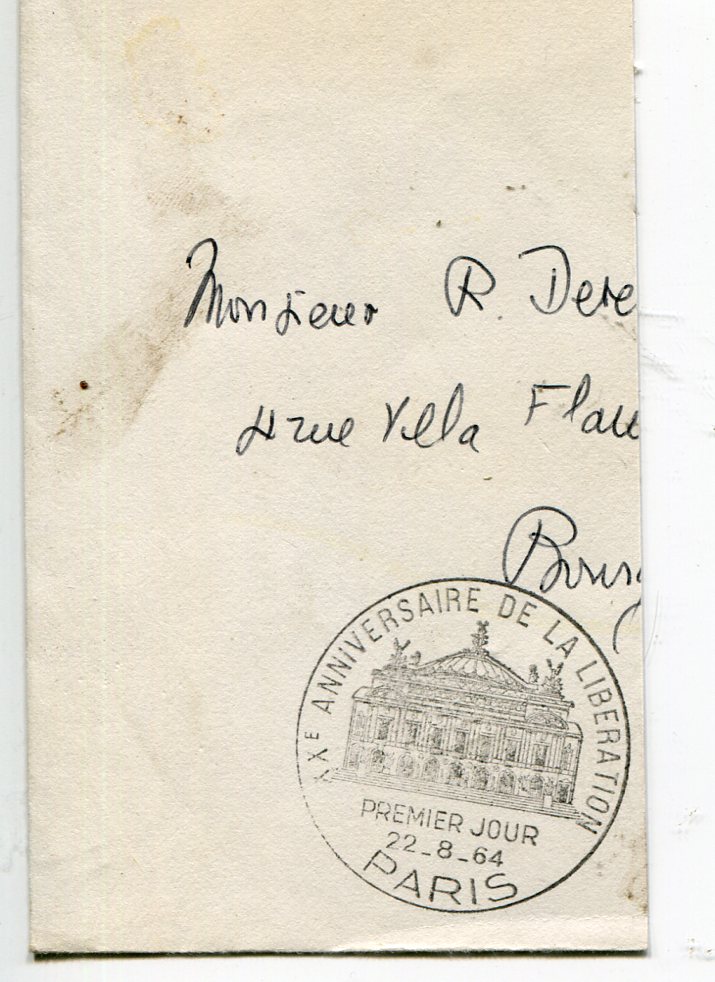 Monsieur R. Dere
4 rue Villa Flau
Bourg
XXE ANNIVERSAIRE DE LA LIBERATION
PREMIER JOUR
22_8_64
PARIS